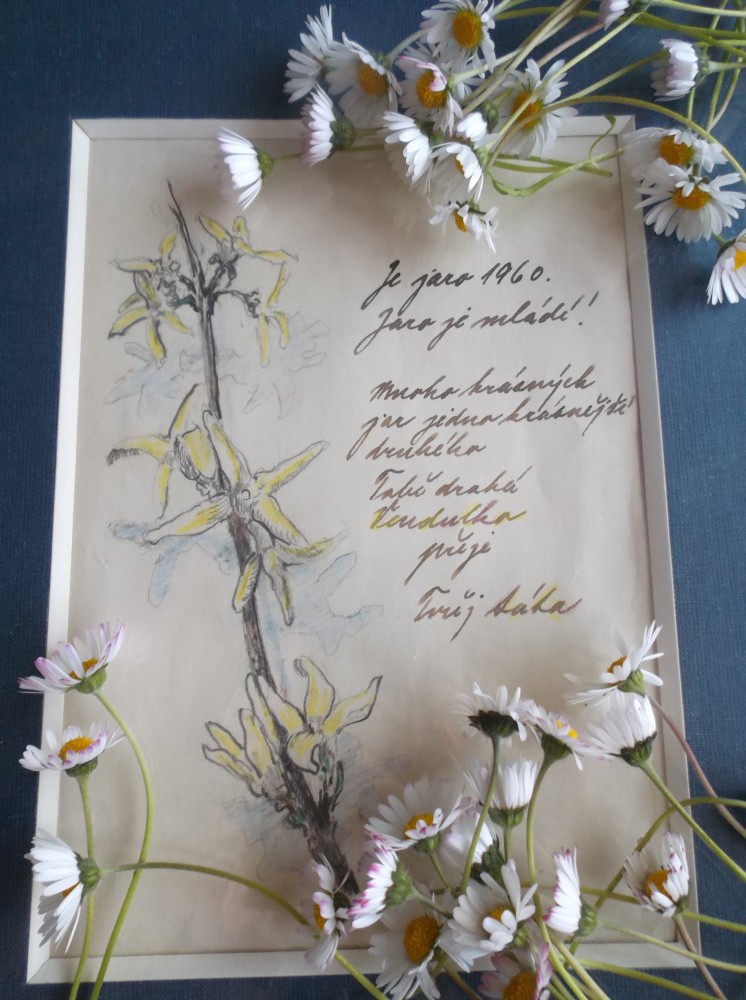 Je jaro 1960.
Jaro je mládí!
Mnoho krásných
jar jedno krásnější
druhého
Tobě drahá
Vendulko
přeje
Tvůj táta